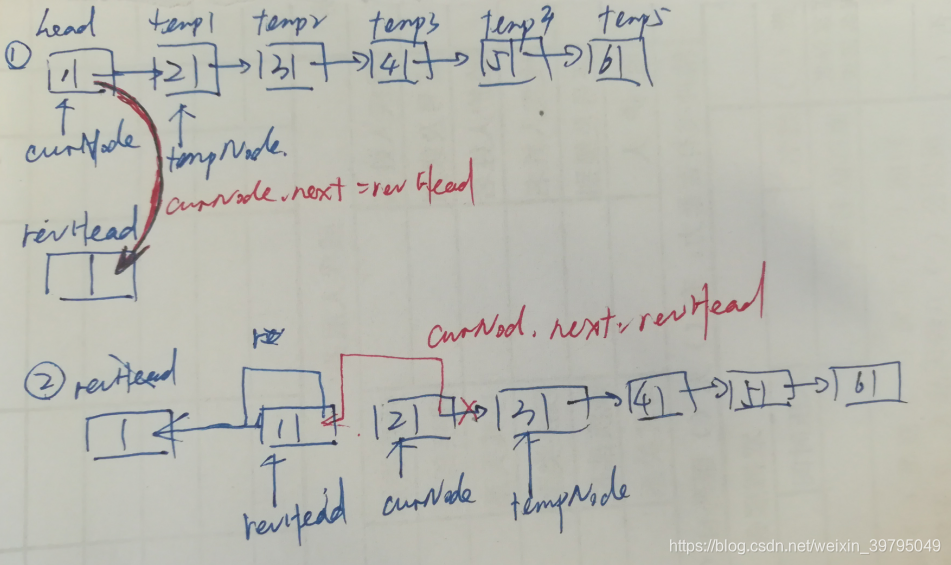 head temp1 temp2 temp3 temp4 temp5
① 1 2 3 4 5 6
curNode tempNode.
curNode.next = revHead
revHead
curNod. next = revHead
② revHead
1 2 3 4 5 6
revHead curNode tempNode
https://blog.csdn.net/weixin_39795049